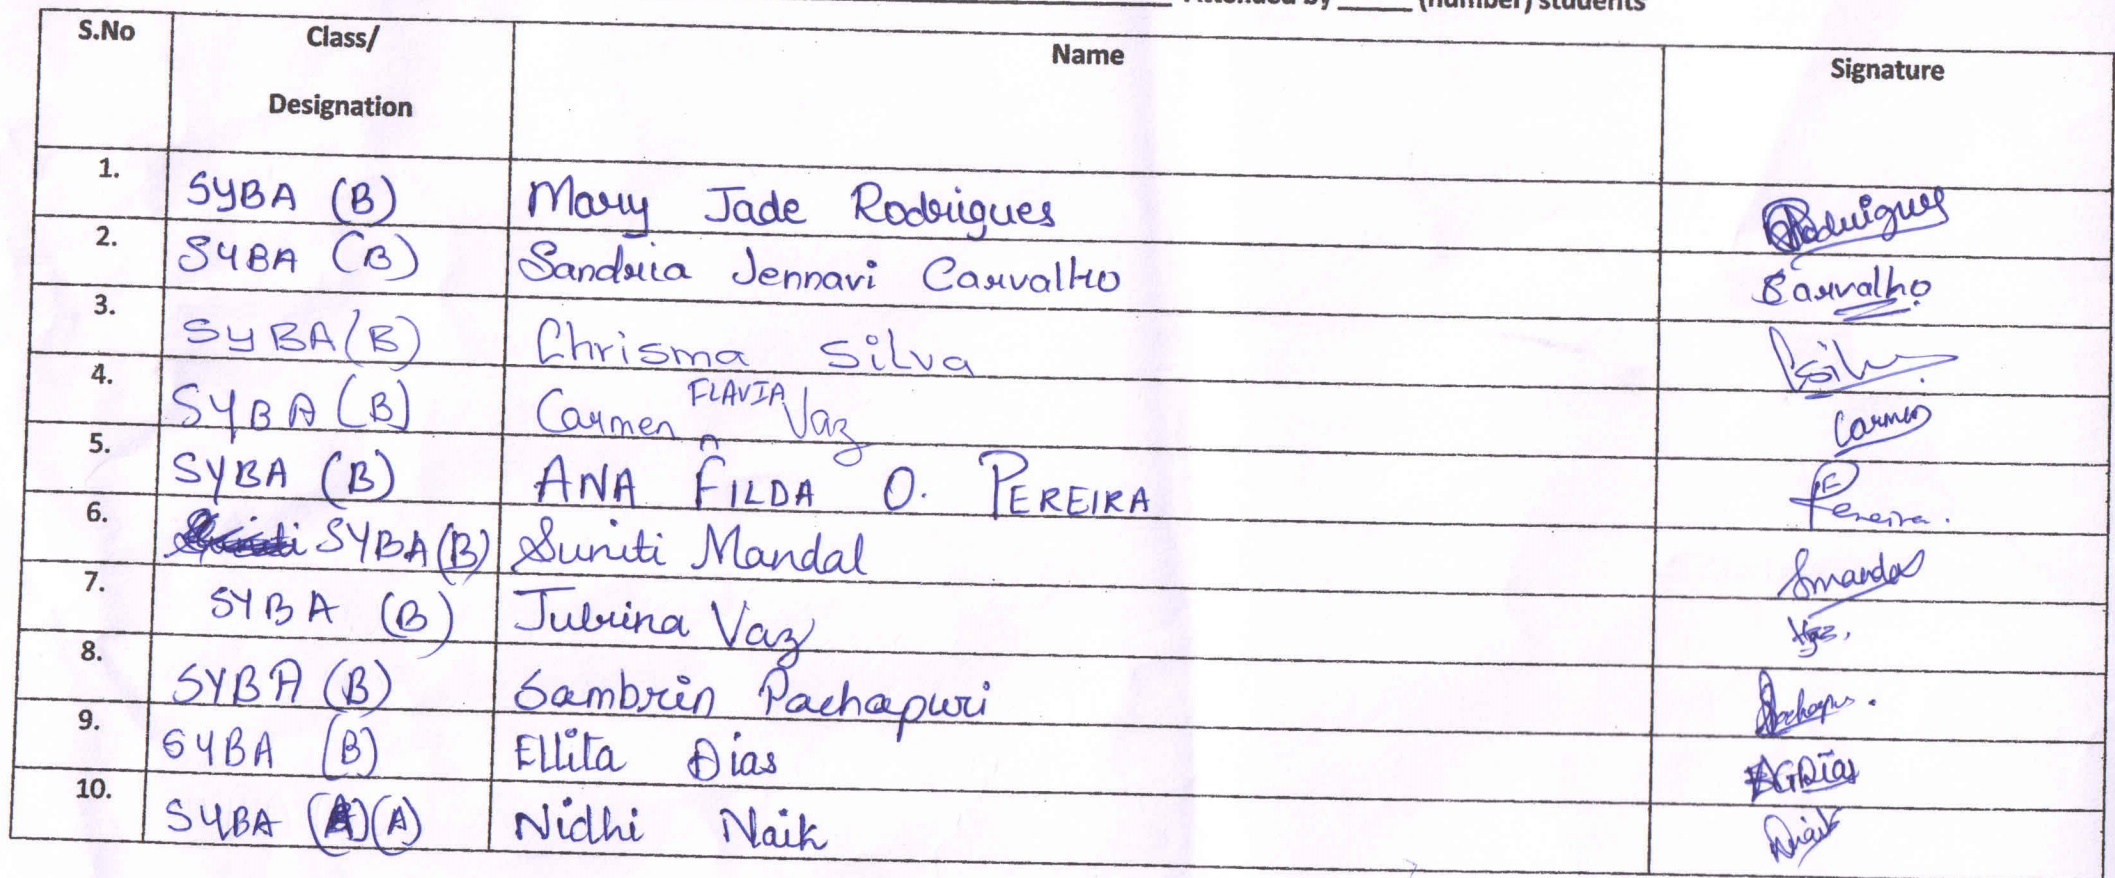 Attended by _____ (number) students
S.No Class/ Designation Name Signature
1. SYBA (B) Mary Jade Rodrigues Rodrigues
2. SYBA (B) Sandria Jennavi Carvalho Carvalho
3. SYBA (B) Chrisma Silva
4. SYBA (B) Carmen FLAVIA Vaz Carmen
5. SYBA (B) ANA FILDA O. PEREIRA Pereira.
6. SYBA (B) Suniti Mandal Smandal
7. SYBA (B) Jubrina Vaz Vaz.
8. SYBA (B) Sambrin Pachapuri
9. SYBA (B) Ellita Dias EGDias
10. SYBA (A) Nidhi Naik Naik